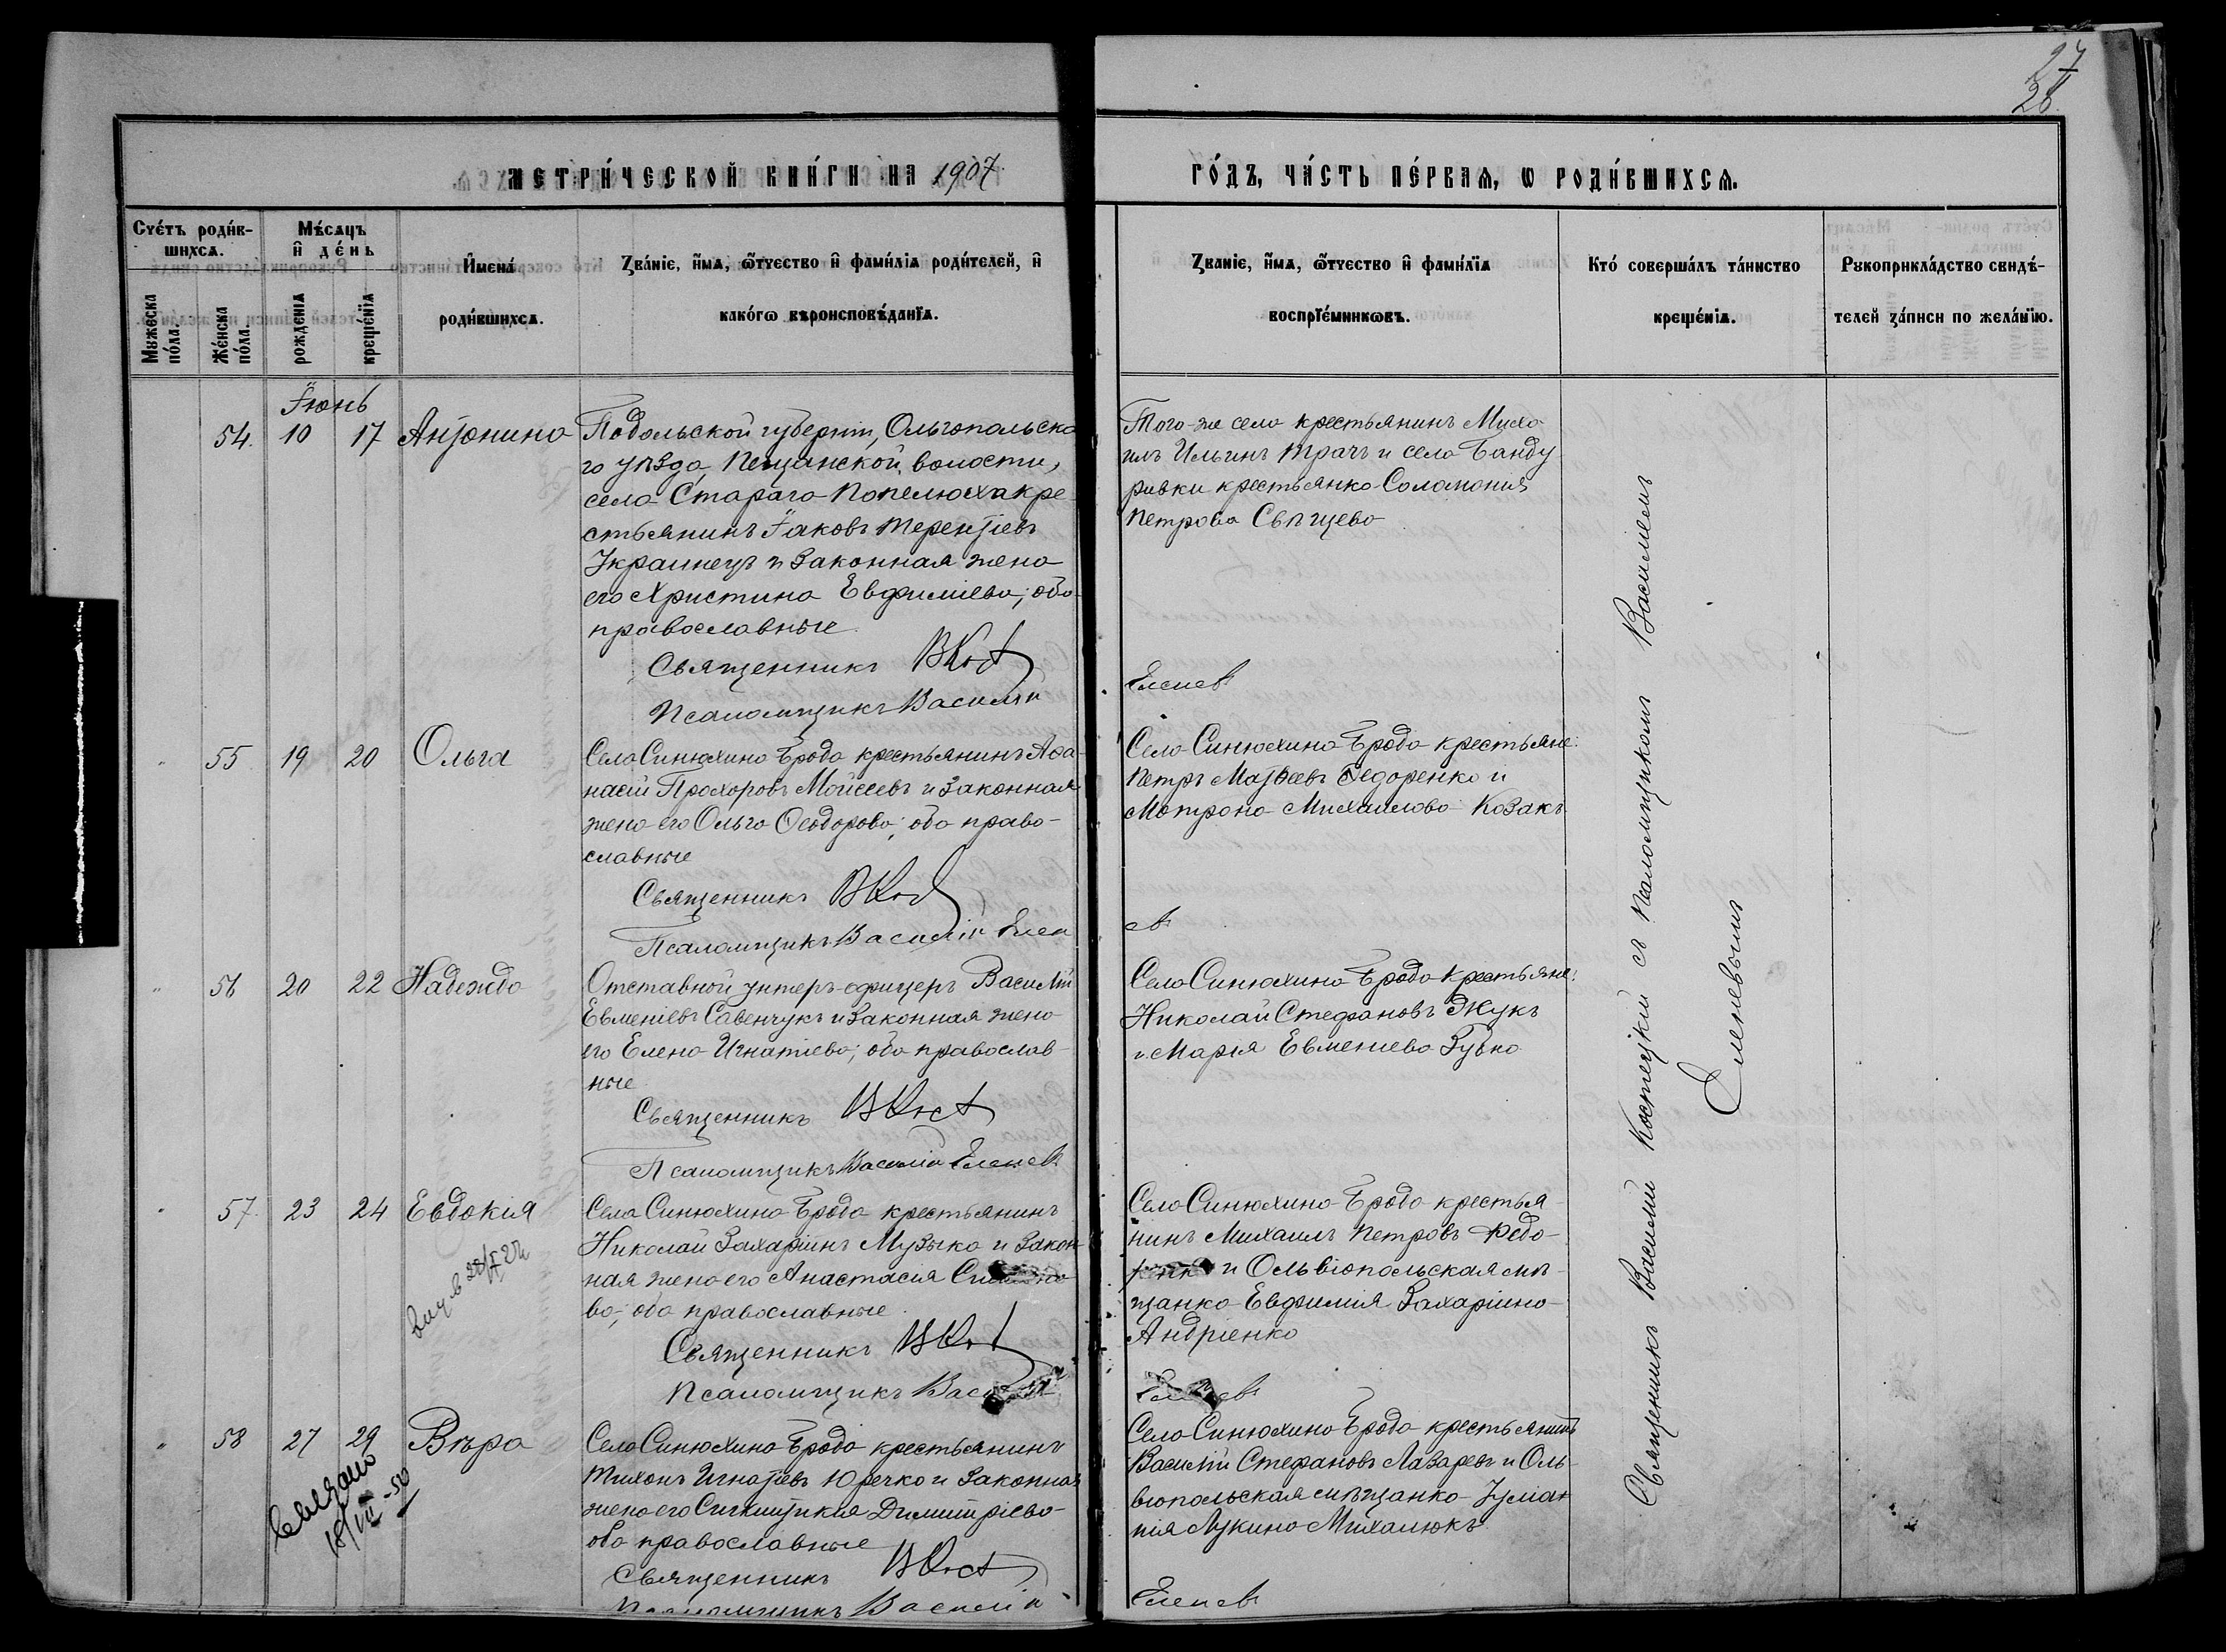 27
28
МЕТРИ́ЧЕСКОЙ КНИ́ГИ НА 1907
ГО́ДЪ, ЧА́СТЬ ПЕ́РВАѦ, Ѡ РОДИ́ВШИХСѦ.
Счетъ роди́в-
шихсѧ.
Мꙋжеска
по́ла.
Же́нска
по́ла.
Мѣ́сѧцъ
и де́нь
рожденїѧ
креще́нїѧ
Имена́
роди́вшихсѧ.
Зва́нїе, и́мѧ, ѻ҆́тчество и фами́лїа роди́телей, и
како́гѡ вѣроисповѣ́данїѧ.
Званїе, и́мѧ, ѻ҆́тчество и фами́лїа
воспрїе́мникѡвъ.
Кто́ соверша́лъ та́инство
креще́нїѧ.
Рꙋкоприкла́дство свидѣ́-
телей за́писи по жела́нїю.
Іюнь
54. 10 17 Антонина
Подольской губерніи, Ольгопольска
го уѣзда, Песчанской волости,
села Стараго Попелюха кре
стьянинъ Іаковъ Терентіевъ
Украинецъ и законная жена
его Христина Евфиміева; оба
православные
Священникъ ВКост
Псаломщикъ Василій
Того-же села крестьянинъ Миха
илъ Ильинъ Ткачъ и села Банду
ровки крестьянка Соломонія
Петрова
Еленев
55 19 20 Ольга
Села Синюхина Брода крестьянинъ Афа-
насій Прохоровъ Мойсеевъ и законная
жена его Ольга Ѳеодорова; оба право-
славные
Священникъ ВКост
Псаломщикъ Василій Елен
Села Синюхина Брода крестьяне:
Петръ Матѳеевъ Ѳедоренко и
Матрона Михаилова Козакъ
ев
56 20 22 Надежда
Отставной унтеръ-офицеръ Василій
Евменіевъ Савенчукъ и законная жена
его Елена Игнатіева; оба православ-
ные
Священникъ ВКост
Псаломщикъ Василій Еленев
Села Синюхина Брода крестьяне:
Николай Стефановъ Жукъ
и Марія Евменіева Зубко
57. 23 24 Евдокія
Села Синюхина Брода крестьянинъ
Николай Захаріинъ Музыка и закон
ная жена его Анастасія
ва; оба православные
Священникъ ВКост
Псаломщикъ Василій
Села Синюхина Брода крестья
нинъ Михаилъ Петровъ Ѳедо-
и Ольвіопольская мѣ-
щанка Евфимія Захаріина
Андріенко
Еленев
58 27 29 Вѣра
Села Синюхина Брода крестьянинъ
Тихонъ Игнатіевъ Юречко и законная
жена его Синклитикія Димитріева
оба православные
Священникъ ВКост
Псаломщикъ Василій
Села Синюхина Брода крестьянинъ
Василій Стефановъ Лазаревъ и Оль-
віопольская мѣщанка Іуліа
нія Лукина Михалюкъ
Еленев
18/VII-50
Священникъ Василій Костецкій съ псаломщикомъ Василіемъ
Еленевымъ